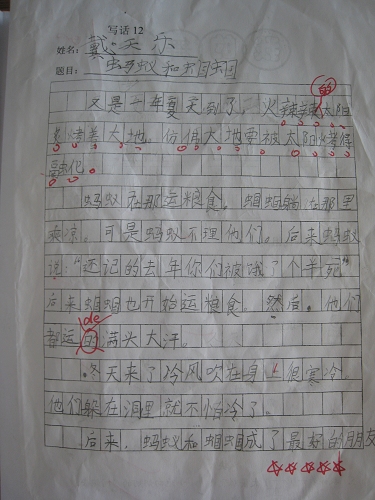 写话12
姓名：戴天乐
题目：蚂蚁和蝈蝈
的
又是一年夏天到了，火辣辣太阳
烤着大地。仿佛大地要被太阳烤得
融化。
蚂蚁在那运粮食。蝈蝈躺在那里
乘凉。可是蚂蚁不理他们。后来蚂蚁
说："还记的去年你们被饿了个半死"
后来蝈蝈也开始运粮食。然后，他们
de
都运的满头大汗。
冬天来了冷风吹在身上很寒冷
他们躲在洞里就不怕冷了。
后来，蚂蚁和蝈蝈成了最好的朋友